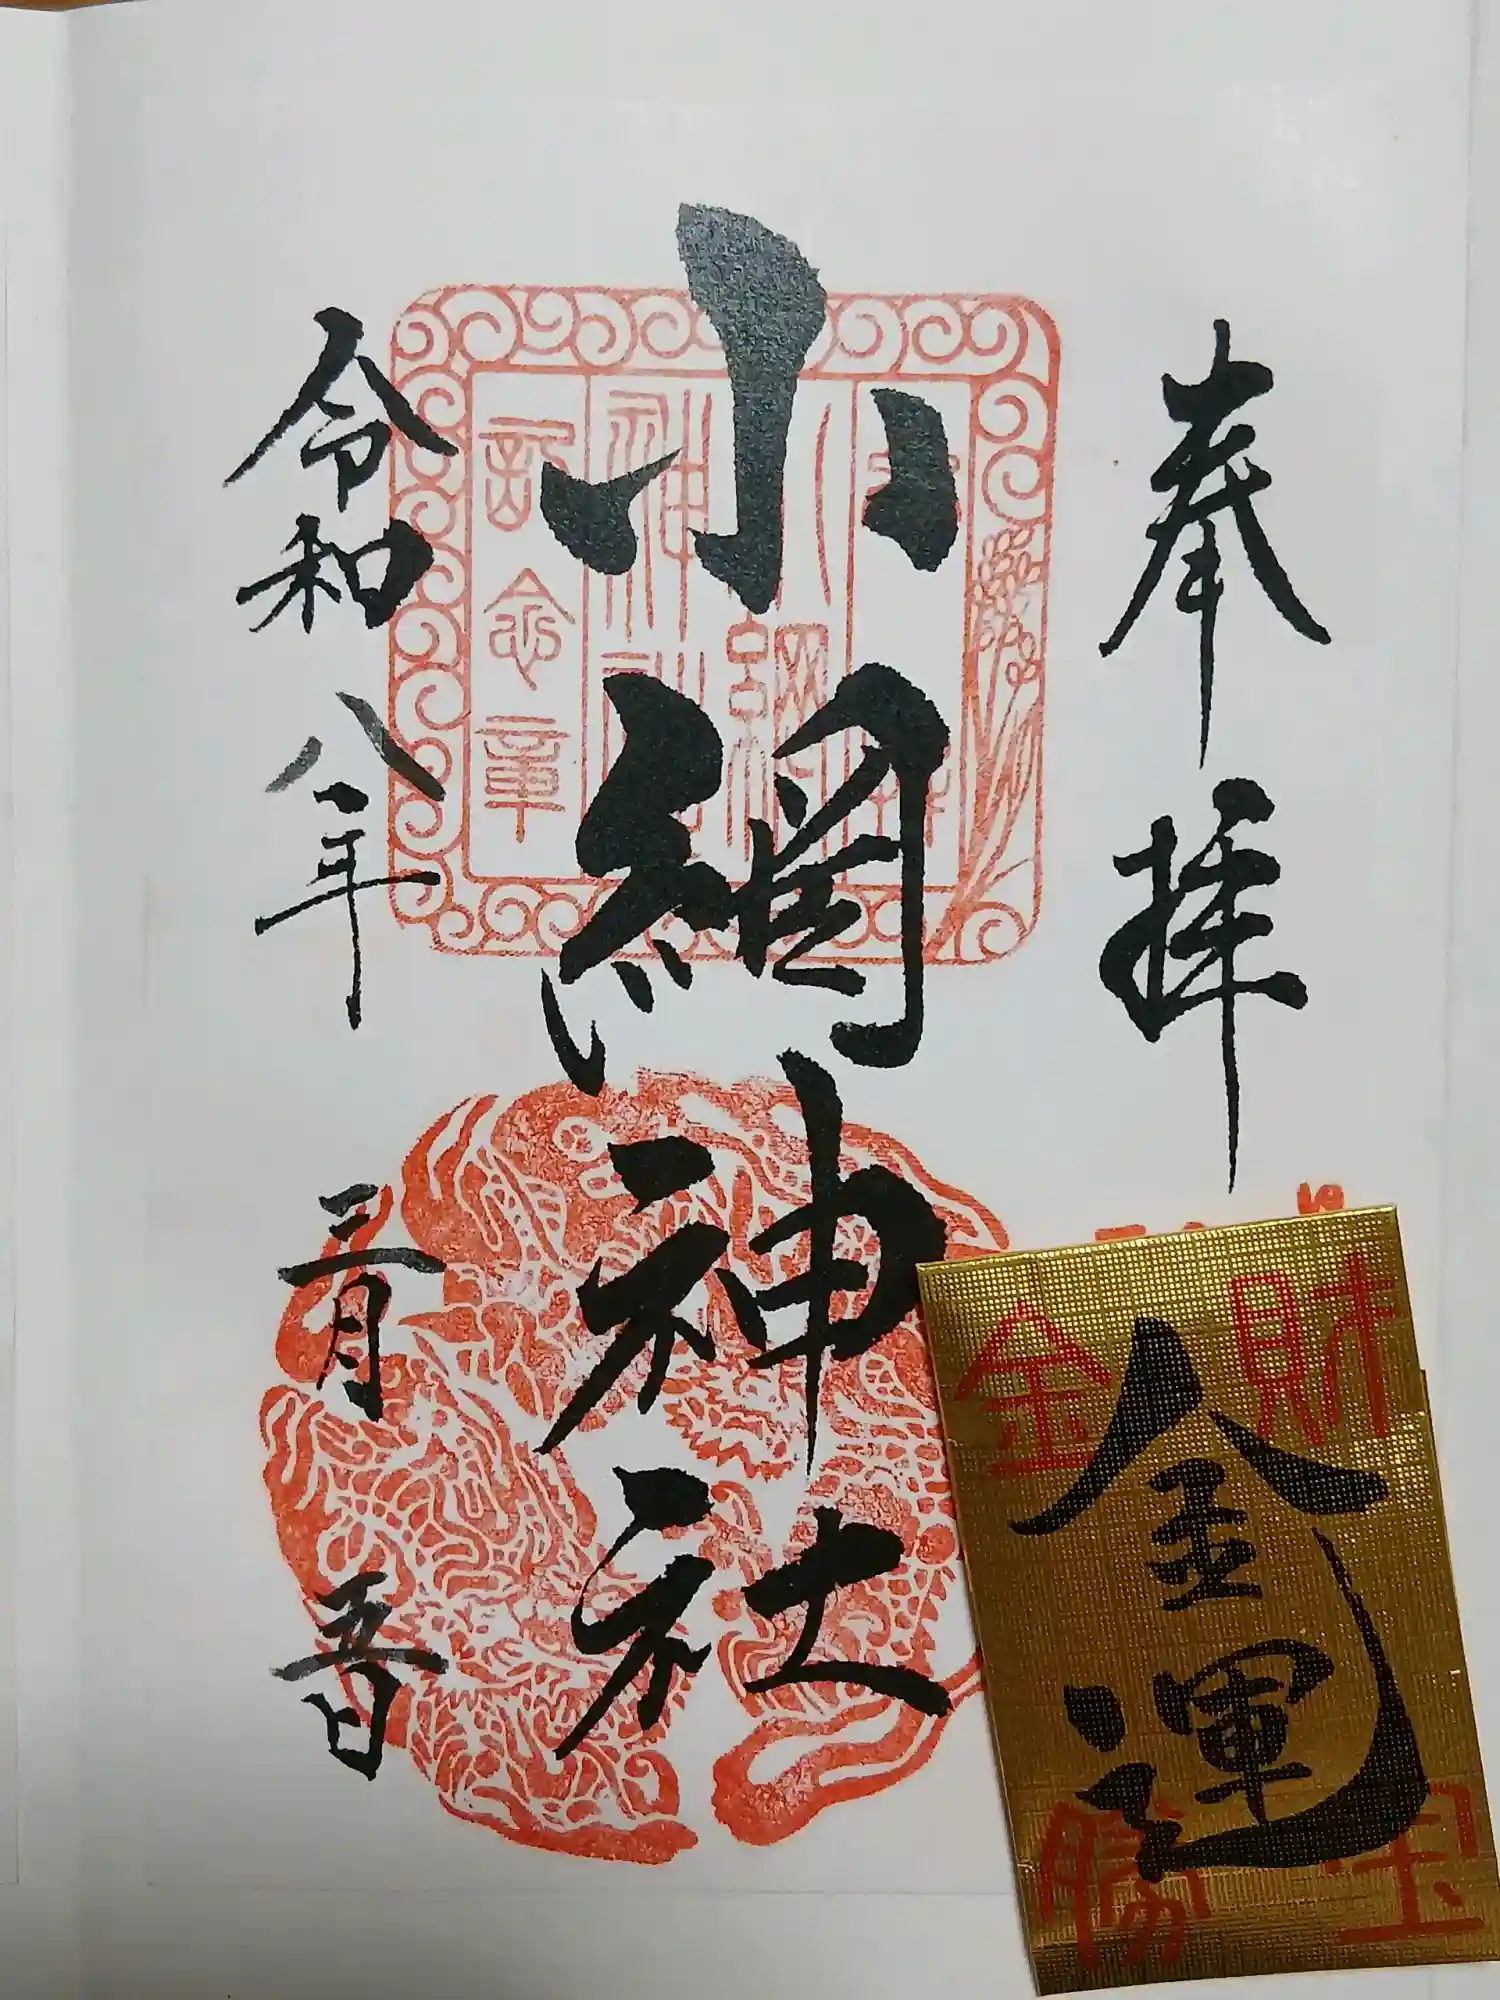 奉拝
小網神社
令和八年 三月 五日
参拝
小網
神社
記念章
財宝
金勝
金運